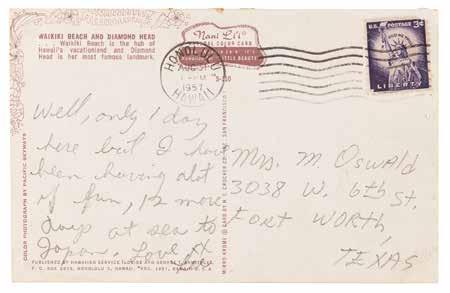 WAIKIKI BEACH AND DIAMOND HEAD
. . . Waikiki Beach is the hub of
Hawaii's vacationland and Diamond
Head is her most famous landmark.
Nani Li'i
COLOR CARD
HONOLULU
1957
HAWAII
S-210
U.S. POSTAGE
3¢
LIBERTY
Well, only 1 day
here but I have
been having alot
of fun, 12 more
days at sea to
Japan. Love xx
Mrs. M. Oswald
3038 W. 6th St.
Fort Worth,
TEXAS
COLOR PHOTOGRAPH BY PACIFIC SKYWAYS
PUBLISHED BY HAWAIIAN SERVICE
P. O. BOX 2835, HONOLULU 3, HAWAII